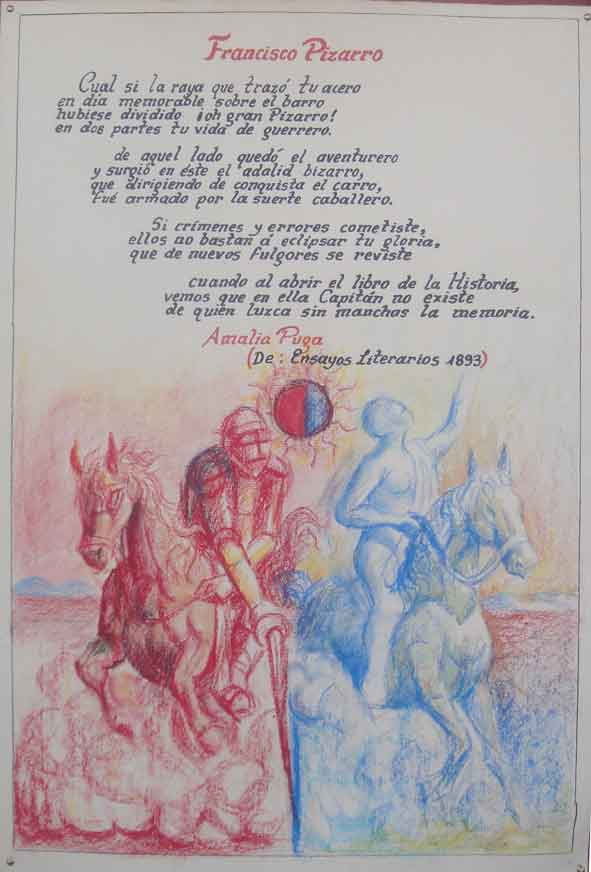 Francisco Pizarro
Cual si la raya que trazó tu acero
en día memorable sobre el barro
hubiese dividido ¡oh gran Pizarro!
en dos partes tu vida de guerrero.
de aquel lado quedó el aventurero
y surgió en éste el adalid bizarro,
que dirigiendo de conquista el carro,
fué armado por la suerte caballero.
Si crímenes y errores cometiste,
ellos no bastan á eclipsar tu gloria,
que de nuevos fulgores se reviste
cuando al abrir el libro de la Historia,
vemos que en ella Capitán no existe
de quien luzca sin manchas la memoria.
Amalia Puga
(De: Ensayos Literarios 1893)